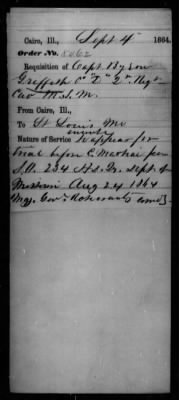 Cairo, Ill., Sept 4" 1864.
Order No. 5062
Requisition of Capt. Byron
Griffith Co "D" 2" Regt
Cav M.S.M.
From Cairo, Ill.,
To St Louis Mo
Nature of Service to appear for
trial before C. Martial per
S.O. 234 Hd. Qr. Dept. of
Missouri Aug 24 1864
Maj. Gen'l Rosecrans comd'g.